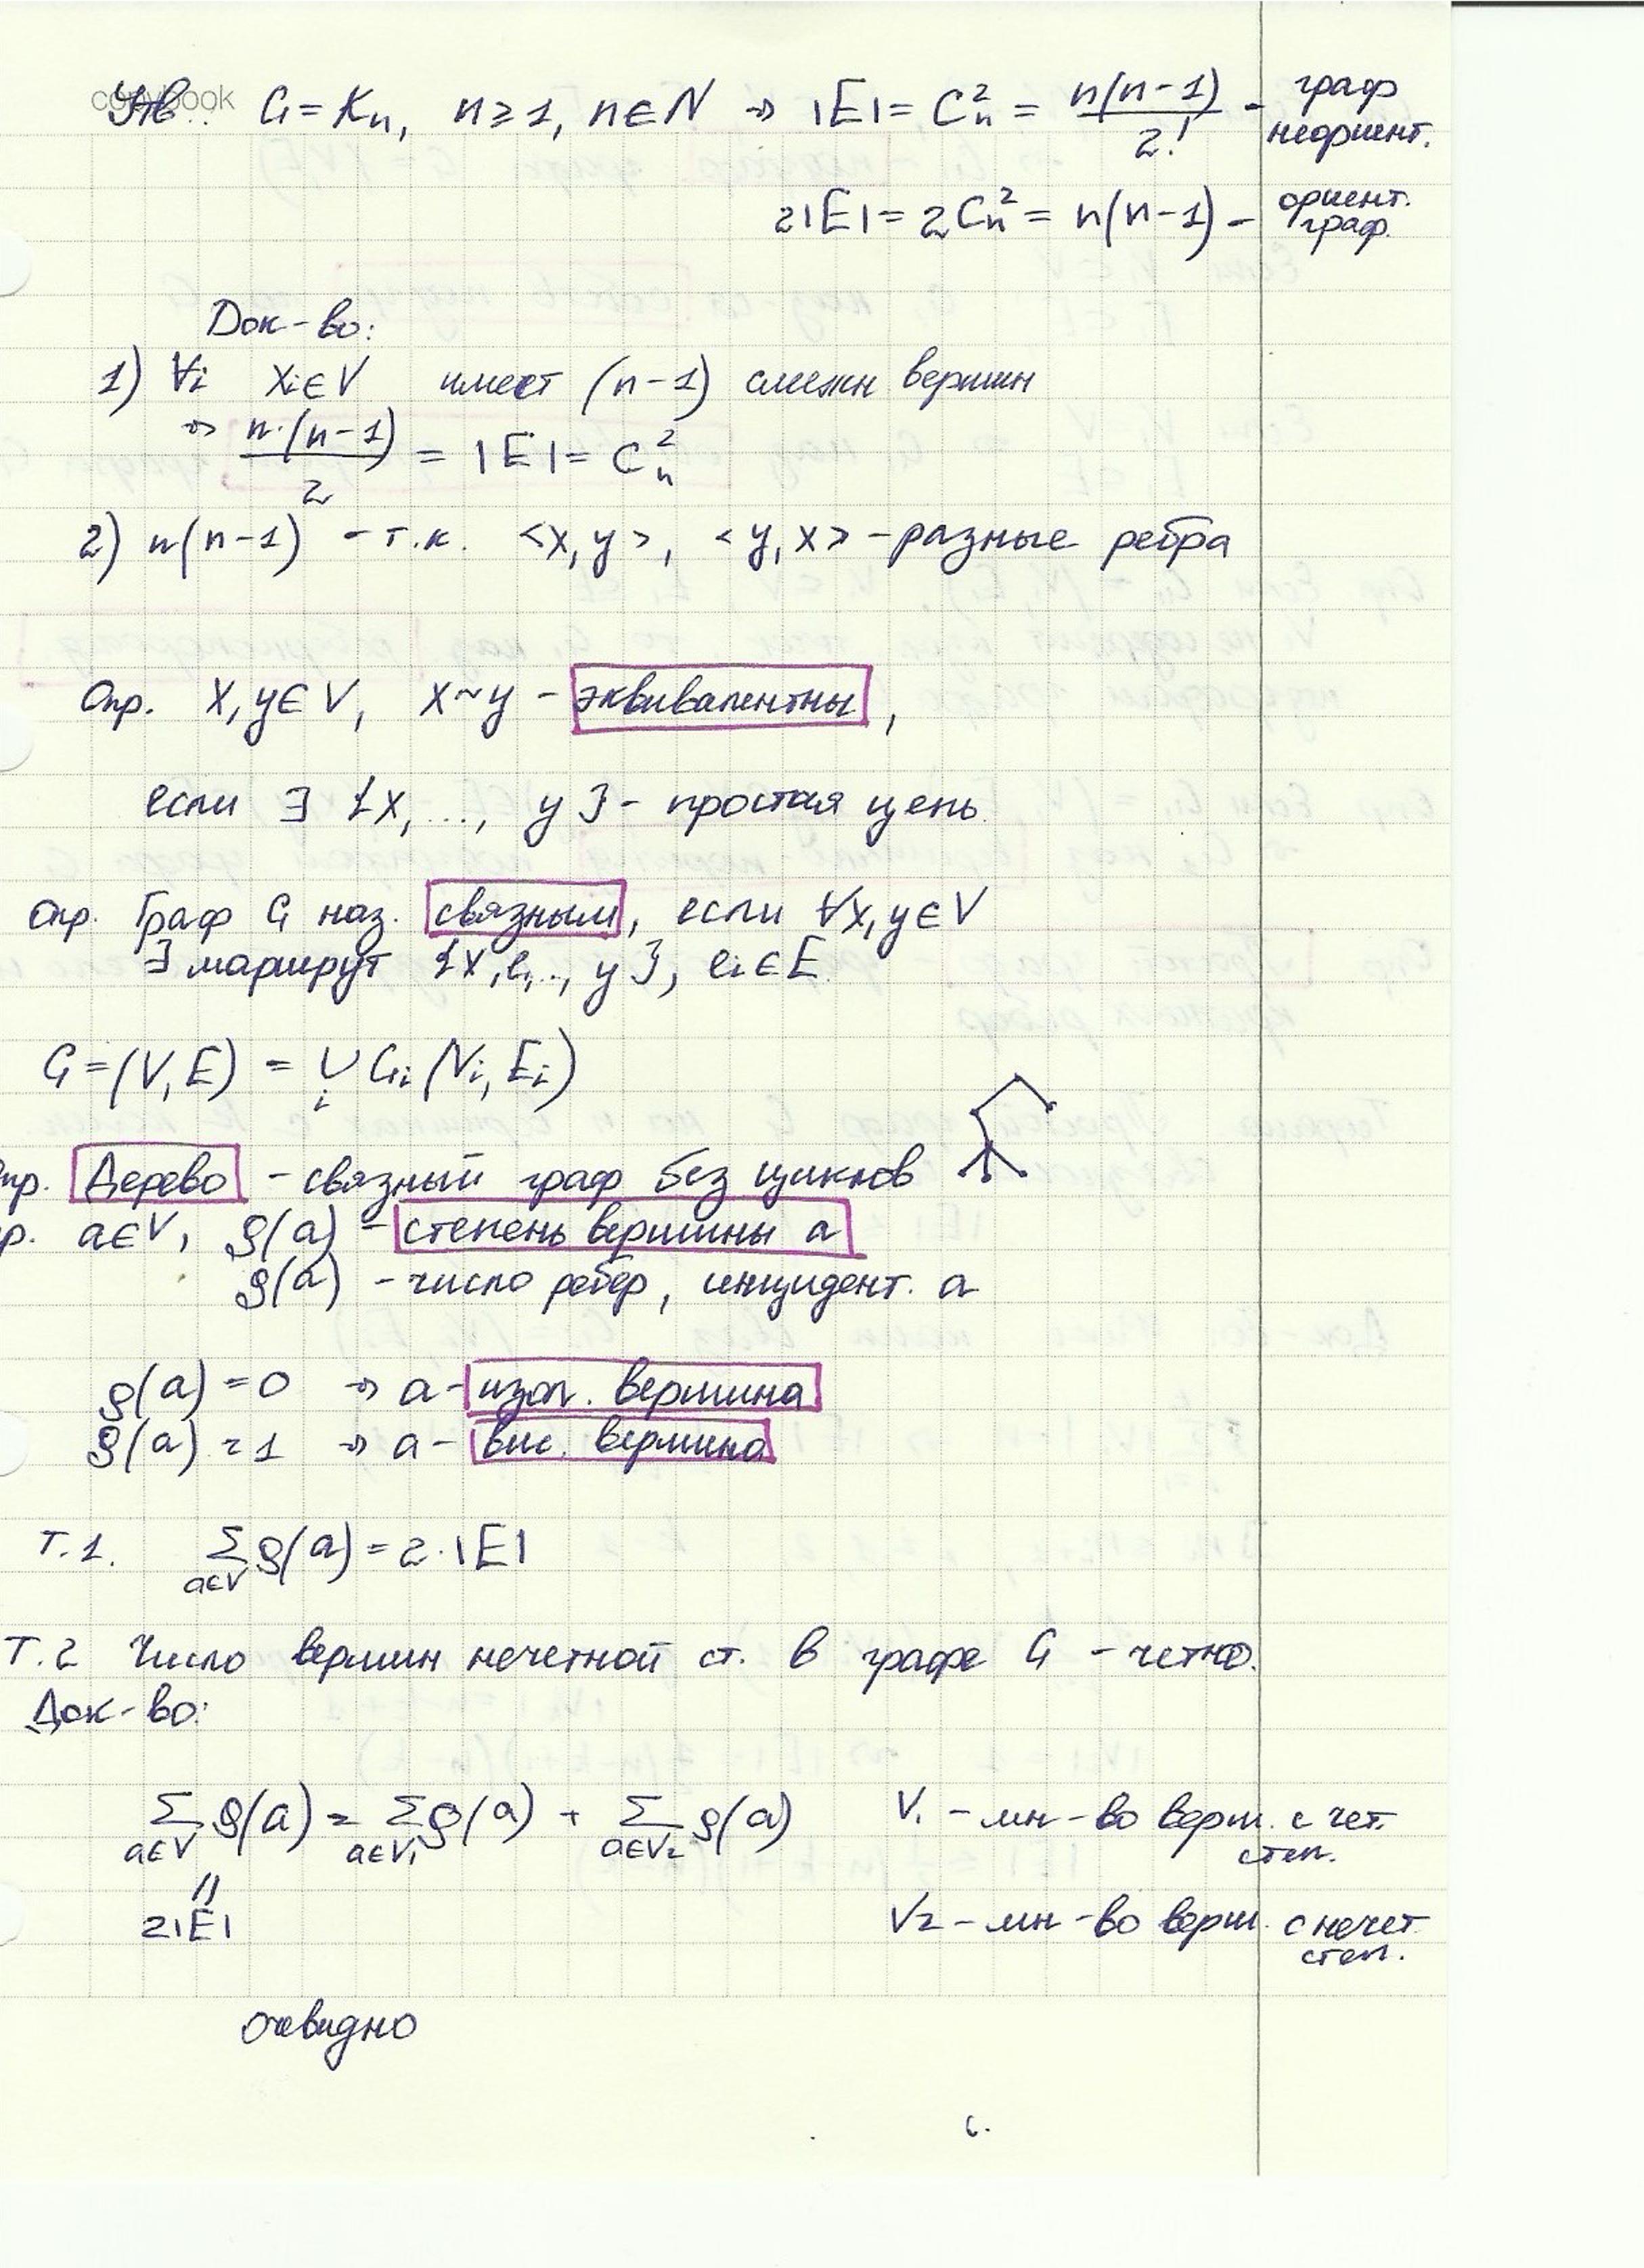 copybook
Утв. G = Kn, n ≥ 1, n ∈ N ⇒ |E| = C_n^2 = n(n-1)/2! - граф неориент.
2|E| = 2C_n^2 = n(n-1) - ориент. граф.
Док-во:
1) ∀i xi ∈ V имеет (n-1) смежн вершин
⇒ n·(n-1)/2 = |E| = C_n^2
2) n(n-1) - т.к. <x,y>, <y,x> - разные ребра
Опр. x,y ∈ V, x~y - эквивалентны,
если ∃ {x, ..., y} - простая цепь.
Опр. Граф G наз. связным, если ∀x,y ∈ V
∃ маршрут {x, e, .., y}, ei ∈ E.
G = (V,E) = ∪ Gi (Vi, Ei)
i
пр. Дерево - связный граф без циклов
р. a ∈ V, ρ(a) - степень вершины a
ρ(a) - число ребер, инцидент. a
ρ(a) = 0 ⇒ a - изол. вершина
ρ(a) = 1 ⇒ a - вис. вершина
Т.1. Σ ρ(a) = 2·|E|
a∈V
Т.2 Число вершин нечетной ст. в графе G - четно.
Док-во:
Σ ρ(a) = Σ ρ(a) + Σ ρ(a) V1 - мн-во верш. с чет.
a∈V a∈V1 a∈V2 степ.
||
2|E| V2 - мн-во верш. с нечет.
степ.
очевидно
6.